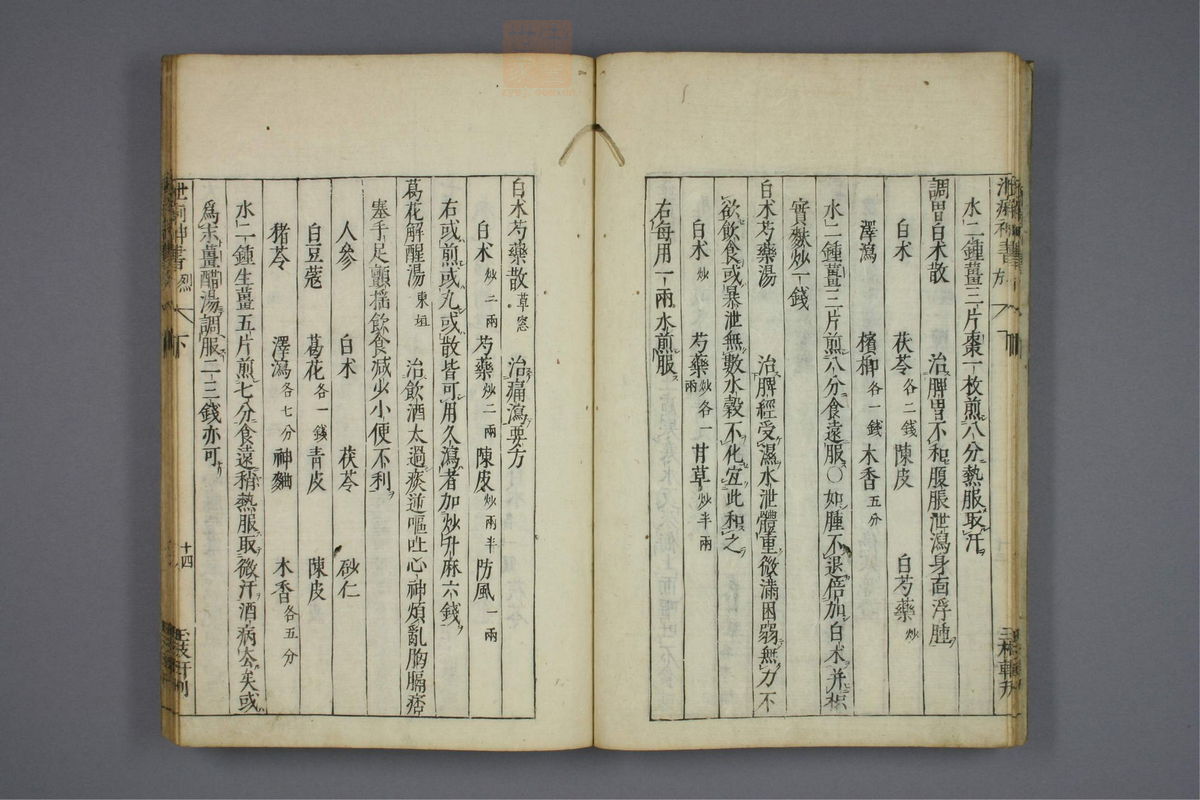 水二鍾薑三片棗一枚煎八分熱服取汗
調胃白朮散　治脾胃不和腹脹泄瀉身面浮腫
白朮　茯苓各二錢　陳皮　白芍藥炒
澤瀉　檳榔各一錢　木香五分
水二鍾薑三片煎八分食遠服〇如腫不退倍加白朮并枳
實麩炒一錢
白朮芍藥湯　治脾經受濕水泄體重微滿困弱無力不
欲飲食或暴泄無數水穀不化宜此和之
白朮炒　芍藥炒各一兩　甘草炒半兩
右每用一兩水煎服
白朮芍藥散草窓　治痛瀉要方
白朮炒二兩　芍藥炒二兩　陳皮炒兩半　防風一兩
右或煎或丸或散皆可用久瀉者加炒升麻六錢
葛花解酲湯東垣　治飲酒太過痰逆嘔吐心神煩亂胸膈痞
塞手足顫搖飲食減少小便不利
人參　白朮　茯苓　砂仁
白豆蔻　葛花各一錢　青皮　陳皮
豬苓　澤瀉各七分　神麯　木香各五分
水二鍾生薑五片煎七分食遠稍熱服取微汗酒病去矣或
爲末薑醋湯調服二三錢亦可
下
十四